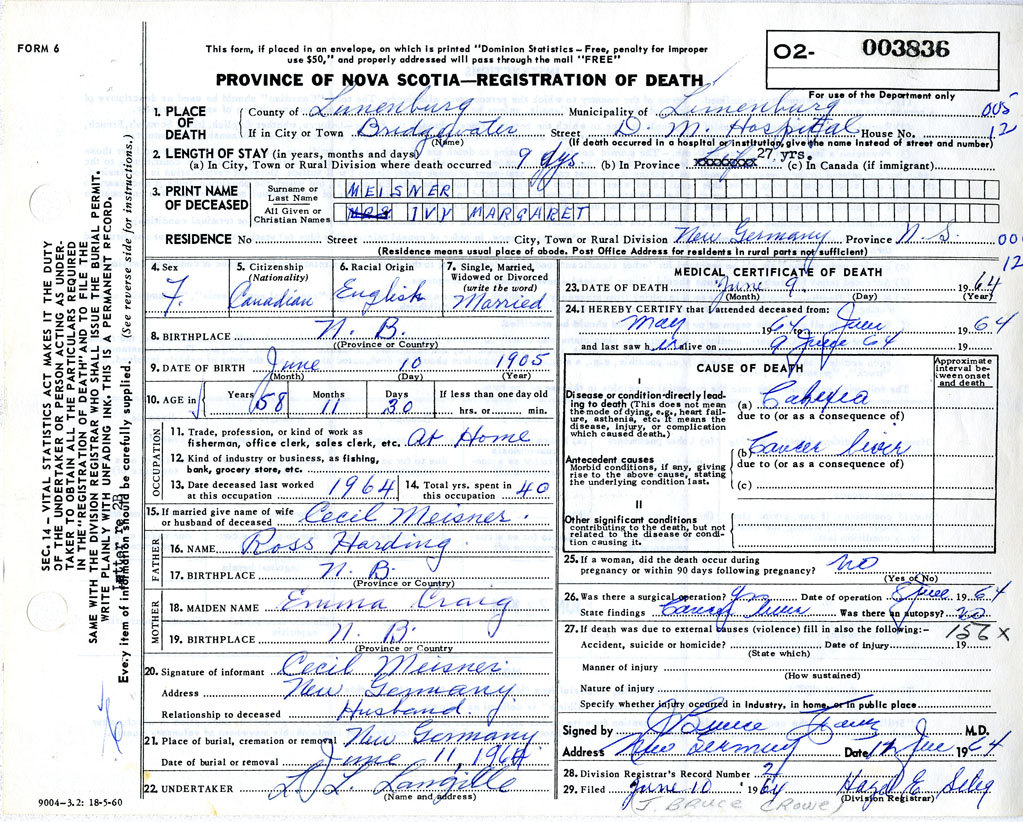 FORM 6
This form, if placed in an envelope, on which is printed "Dominion Statistics – Free, penalty for improper
use $50," and properly addressed will pass through the mail "FREE"
PROVINCE OF NOVA SCOTIA—REGISTRATION OF DEATH
O2- 003836
For use of the Department only
1. PLACE OF DEATH
County of Lunenburg Municipality of Lunenburg 005
If in City or Town Bridgewater Street D. M. Hospital House No. 12
(Name) (If death occurred in a hospital or institution, give the name instead of street and number)
2. LENGTH OF STAY (in years, months and days)
(a) In City, Town or Rural Division where death occurred 9 dys (b) In Province 27 yrs. (c) In Canada (if immigrant)
3. PRINT NAME OF DECEASED
Surname or Last Name MEISNER
All Given or Christian Names MRS IVY MARGARET
RESIDENCE No Street City, Town or Rural Division New Germany Province N.S.
(Residence means usual place of abode. Post Office Address for residents in rural parts not sufficient)
12
SEC. 14 – VITAL STATISTICS ACT MAKES IT THE DUTY
OF THE UNDERTAKER OR PERSON ACTING AS UNDER-
TAKER TO OBTAIN ALL THE PARTICULARS REQUIRED
IN THE "REGISTRATION OF DEATH" AND TO FILE THE
SAME WITH THE DIVISION REGISTRAR WHO SHALL ISSUE THE BURIAL PERMIT.
WRITE PLAINLY WITH UNFADING INK. THIS IS A PERMANENT RECORD.
Every item of information should be carefully supplied. (See reverse side for instructions.)
4. Sex F.
5. Citizenship (Nationality) Canadian
6. Racial Origin English
7. Single, Married, Widowed or Divorced (write the word) Married
8. BIRTHPLACE N. B.
(Province or Country)
9. DATE OF BIRTH June 10 1905
(Month) (Day) (Year)
10. AGE in Years 58 Months 11 Days 30 If less than one day old hrs. or min.
OCCUPATION
11. Trade, profession, or kind of work as
fisherman, office clerk, sales clerk, etc. At Home
12. Kind of industry or business, as fishing,
bank, grocery store, etc.
13. Date deceased last worked at this occupation 1964
14. Total yrs. spent in this occupation 40
15. If married give name of wife or husband of deceased Cecil Meisner.
FATHER
16. NAME Ross Harding
17. BIRTHPLACE N. B.
(Province or Country)
MOTHER
18. MAIDEN NAME Emma Craig
19. BIRTHPLACE N. B.
(Province or Country
20. Signature of informant Cecil Meisner.
Address New Germany
Relationship to deceased Husband.
21. Place of burial, cremation or removal New Germany
Date of burial or removal June 11, 1964
22. UNDERTAKER L. L. Langille
(Name and address)
9004–3.2: 18-5-60
MEDICAL CERTIFICATE OF DEATH
23. DATE OF DEATH June 9 1964
(Month) (Day) (Year)
24. I HEREBY CERTIFY that I attended deceased from:
May 1964 to June 1964
and last saw h er alive on 9 June 64 19
CAUSE OF DEATH
Approximate interval between onset and death
I
Disease or condition directly lead-
ing to death (This does not mean
the mode of dying, e.g., heart fail-
ure, asthenia, etc. It means the
disease, injury, or complication
which caused death.)
(a) Cahexia
due to (or as a consequence of)
Antecedent causes
Morbid conditions, if any, giving
rise to the above cause, stating
the underlying condition last.
(b) Cancer liver
due to (or as a consequence of)
(c)
II
Other significant conditions
contributing to the death, but not
related to the disease or condi-
tion causing it.
25. If a woman, did the death occur during
pregnancy or within 90 days following pregnancy? no
(Yes or No)
26. Was there a surgical operation? yes Date of operation 8 June 1964
State findings Cancer liver Was there an autopsy? no
27. If death was due to external causes (violence) fill in also the following:– 156 x
Accident, suicide or homicide? Date of injury 19
(State which)
Manner of injury
(How sustained)
Nature of injury
Specify whether injury occurred in Industry, in home, or in public place
Signed by J Bruce M.D.
Address New Germany Date 12 June 1964
28. Division Registrar's Record Number 2
29. Filed June 10 1964 Hazel E
(Division Registrar)
J. BRUCE CROWE